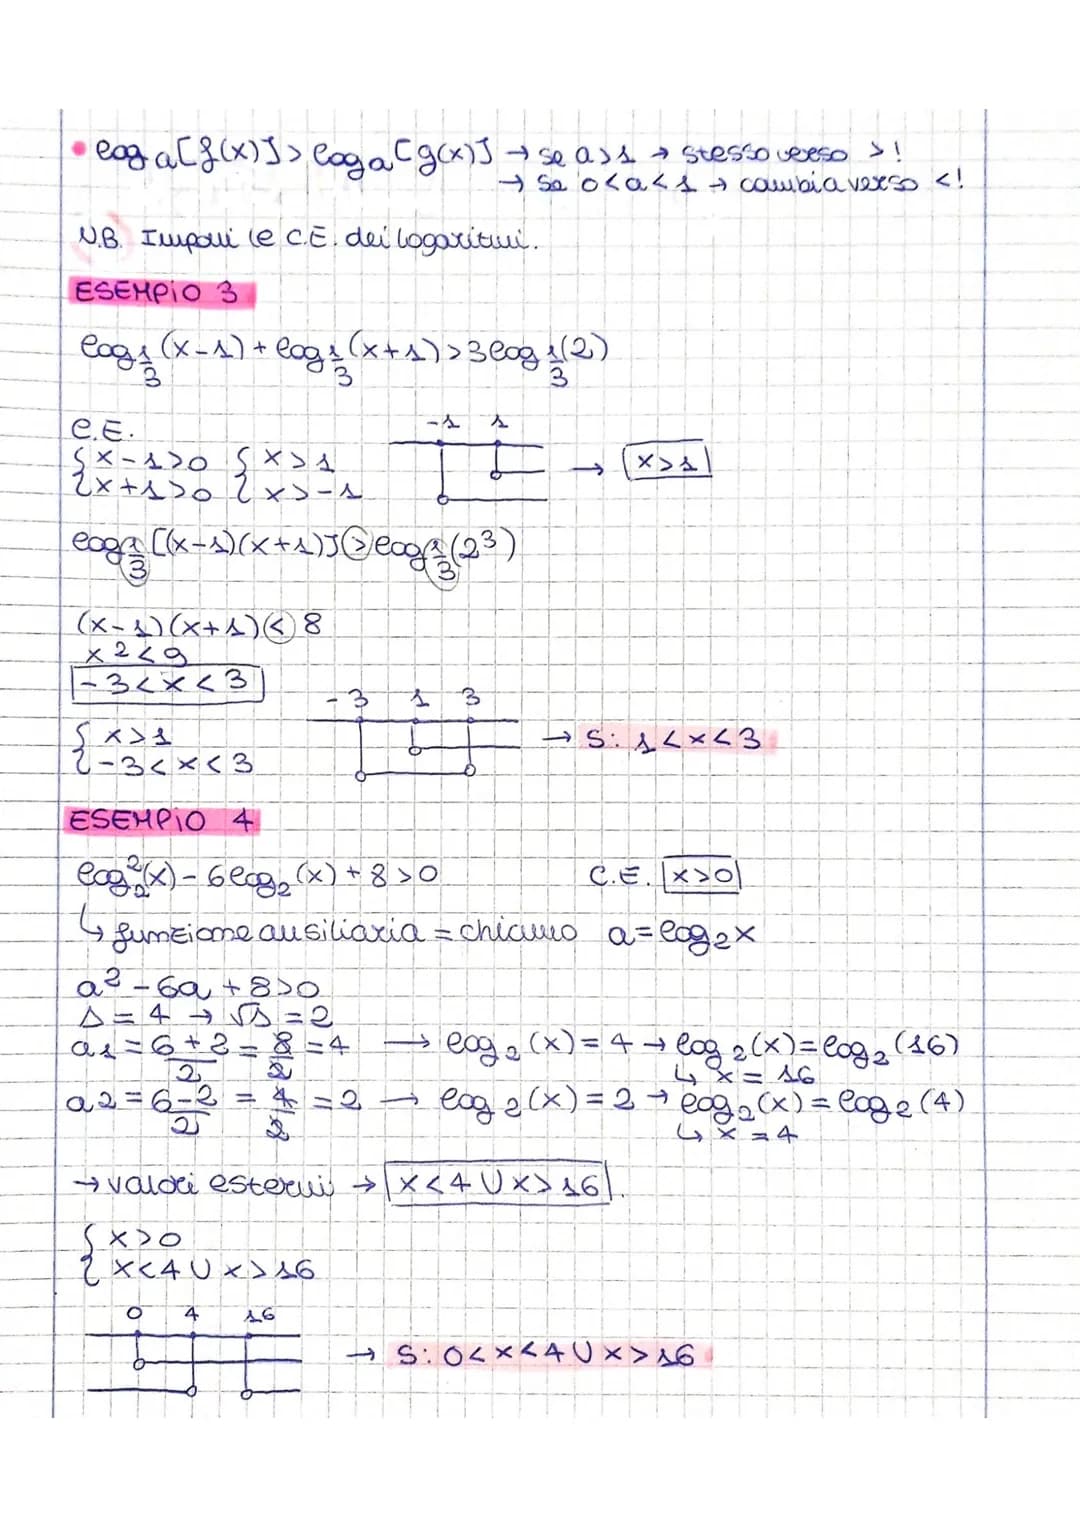 • log a[f(x)] > log a[g(x)] → se a>1 → stesso verso >!
→ se 0<a<1 → cambia verso <!
N.B. Imponi le C.E. dei logaritmi.
ESEMPIO 3
log 1/3 (x-1) + log 1/3 (x+1) > 3 log 1/3 (2)
C.E.
-1 1
{ x-1>0 { x>1
→ x>1
{ x+1>0 { x>-1
log 1/3 [(x-1)(x+1)] > log 1/3 (2³)
(x-1)(x+1) < 8
x² < 9
-3<x<3
-3 1 3
{ x>1
{ -3<x<3
→ S: 1<x<3
ESEMPIO 4
log₂²(x) - 6log₂(x) + 8 >0 C.E. x>0
↳ funzione ausiliaria = chiamo a=log₂x
a² - 6a + 8>0
Δ = 4 → √Δ = 2
a1 = 6+2/2 = 8/2 = 4 → log₂(x) = 4 → log₂(x) = log₂(16)
↳ x = 16
a2 = 6-2/2 = 4/2 = 2 → log₂(x) = 2 → log₂(x) = log₂(4)
↳ x = 4
→ valori esterni → x<4 U x>16.
{ x>0
{ x<4 U x>16
0 4 16
→ S: 0<x<4 U x>16